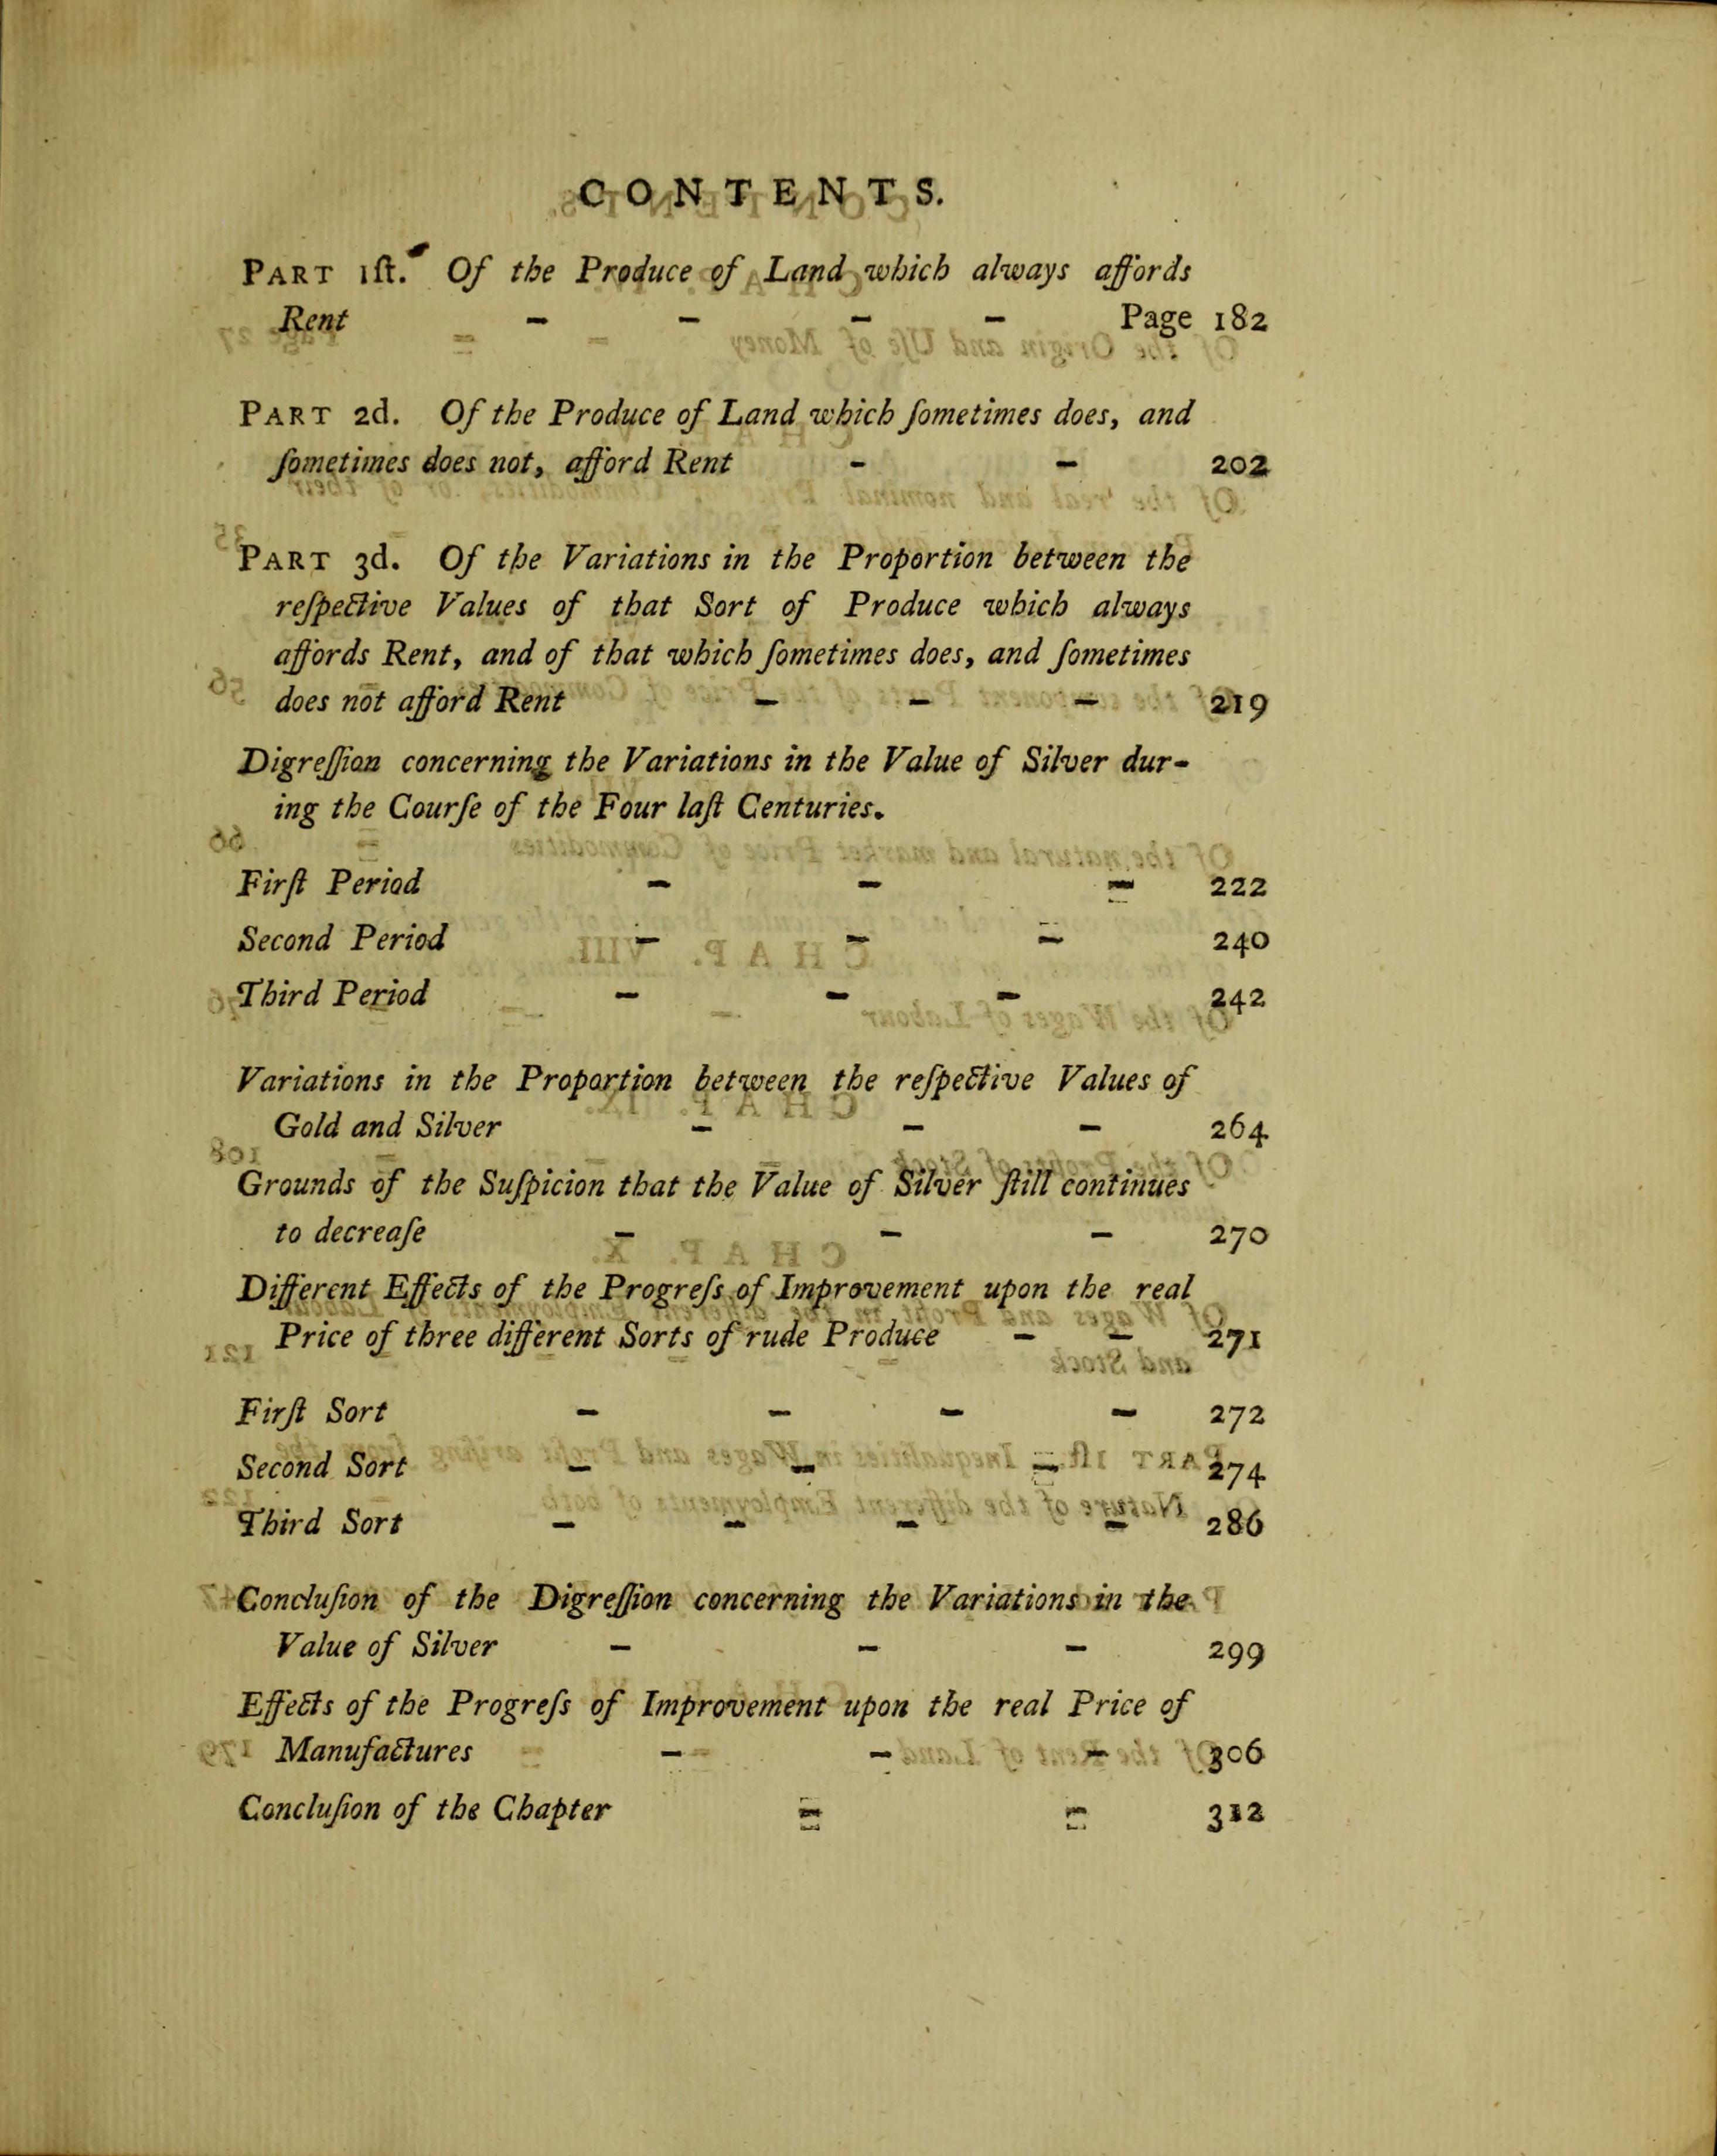 CONTENTS.
PART 1ſt. Of the Produce of Land which always affords
Rent - - - - Page 182
PART 2d. Of the Produce of Land which ſometimes does, and
ſometimes does not, afford Rent - - 202
PART 3d. Of the Variations in the Proportion between the
reſpective Values of that Sort of Produce which always
affords Rent, and of that which ſometimes does, and ſometimes
does not afford Rent - - - 219
Digreſſion concerning the Variations in the Value of Silver dur-
ing the Courſe of the Four laſt Centuries.
Firſt Period - - - 222
Second Period - - - 240
Third Period - - - 242
Variations in the Proportion between the reſpective Values of
Gold and Silver - - - 264
Grounds of the Suſpicion that the Value of Silver ſtill continues
to decreaſe - - - 270
Different Effects of the Progreſs of Improvement upon the real
Price of three different Sorts of rude Produce - - 271
Firſt Sort - - - - 272
Second Sort - - - 274
Third Sort - - - - 286
Concluſion of the Digreſſion concerning the Variations in the
Value of Silver - - - 299
Effects of the Progreſs of Improvement upon the real Price of
Manufactures - - - 306
Concluſion of the Chapter - - 312